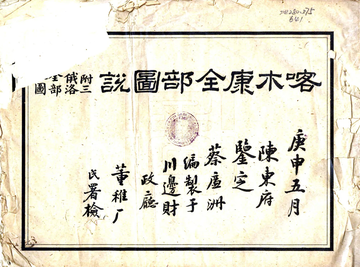 喀木康全部圖說
附三
俄洛
全部
圖
庚申五月
陳東府
鑒定
蔡盧洲
編製于
川邊財
政廳
董稚厂
氏署檢